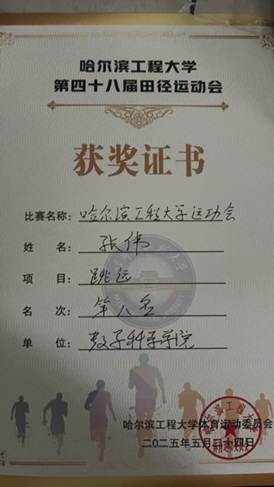 哈尔滨工程大学
第四十八届田径运动会
获奖证书
比赛名称：哈尔滨工程大学运动会
姓 名：张伟
项 目：跳远
名 次：第八名
单 位：数学科学学院
哈尔滨工程大学体育运动委员会
二〇二五年五月二十四日